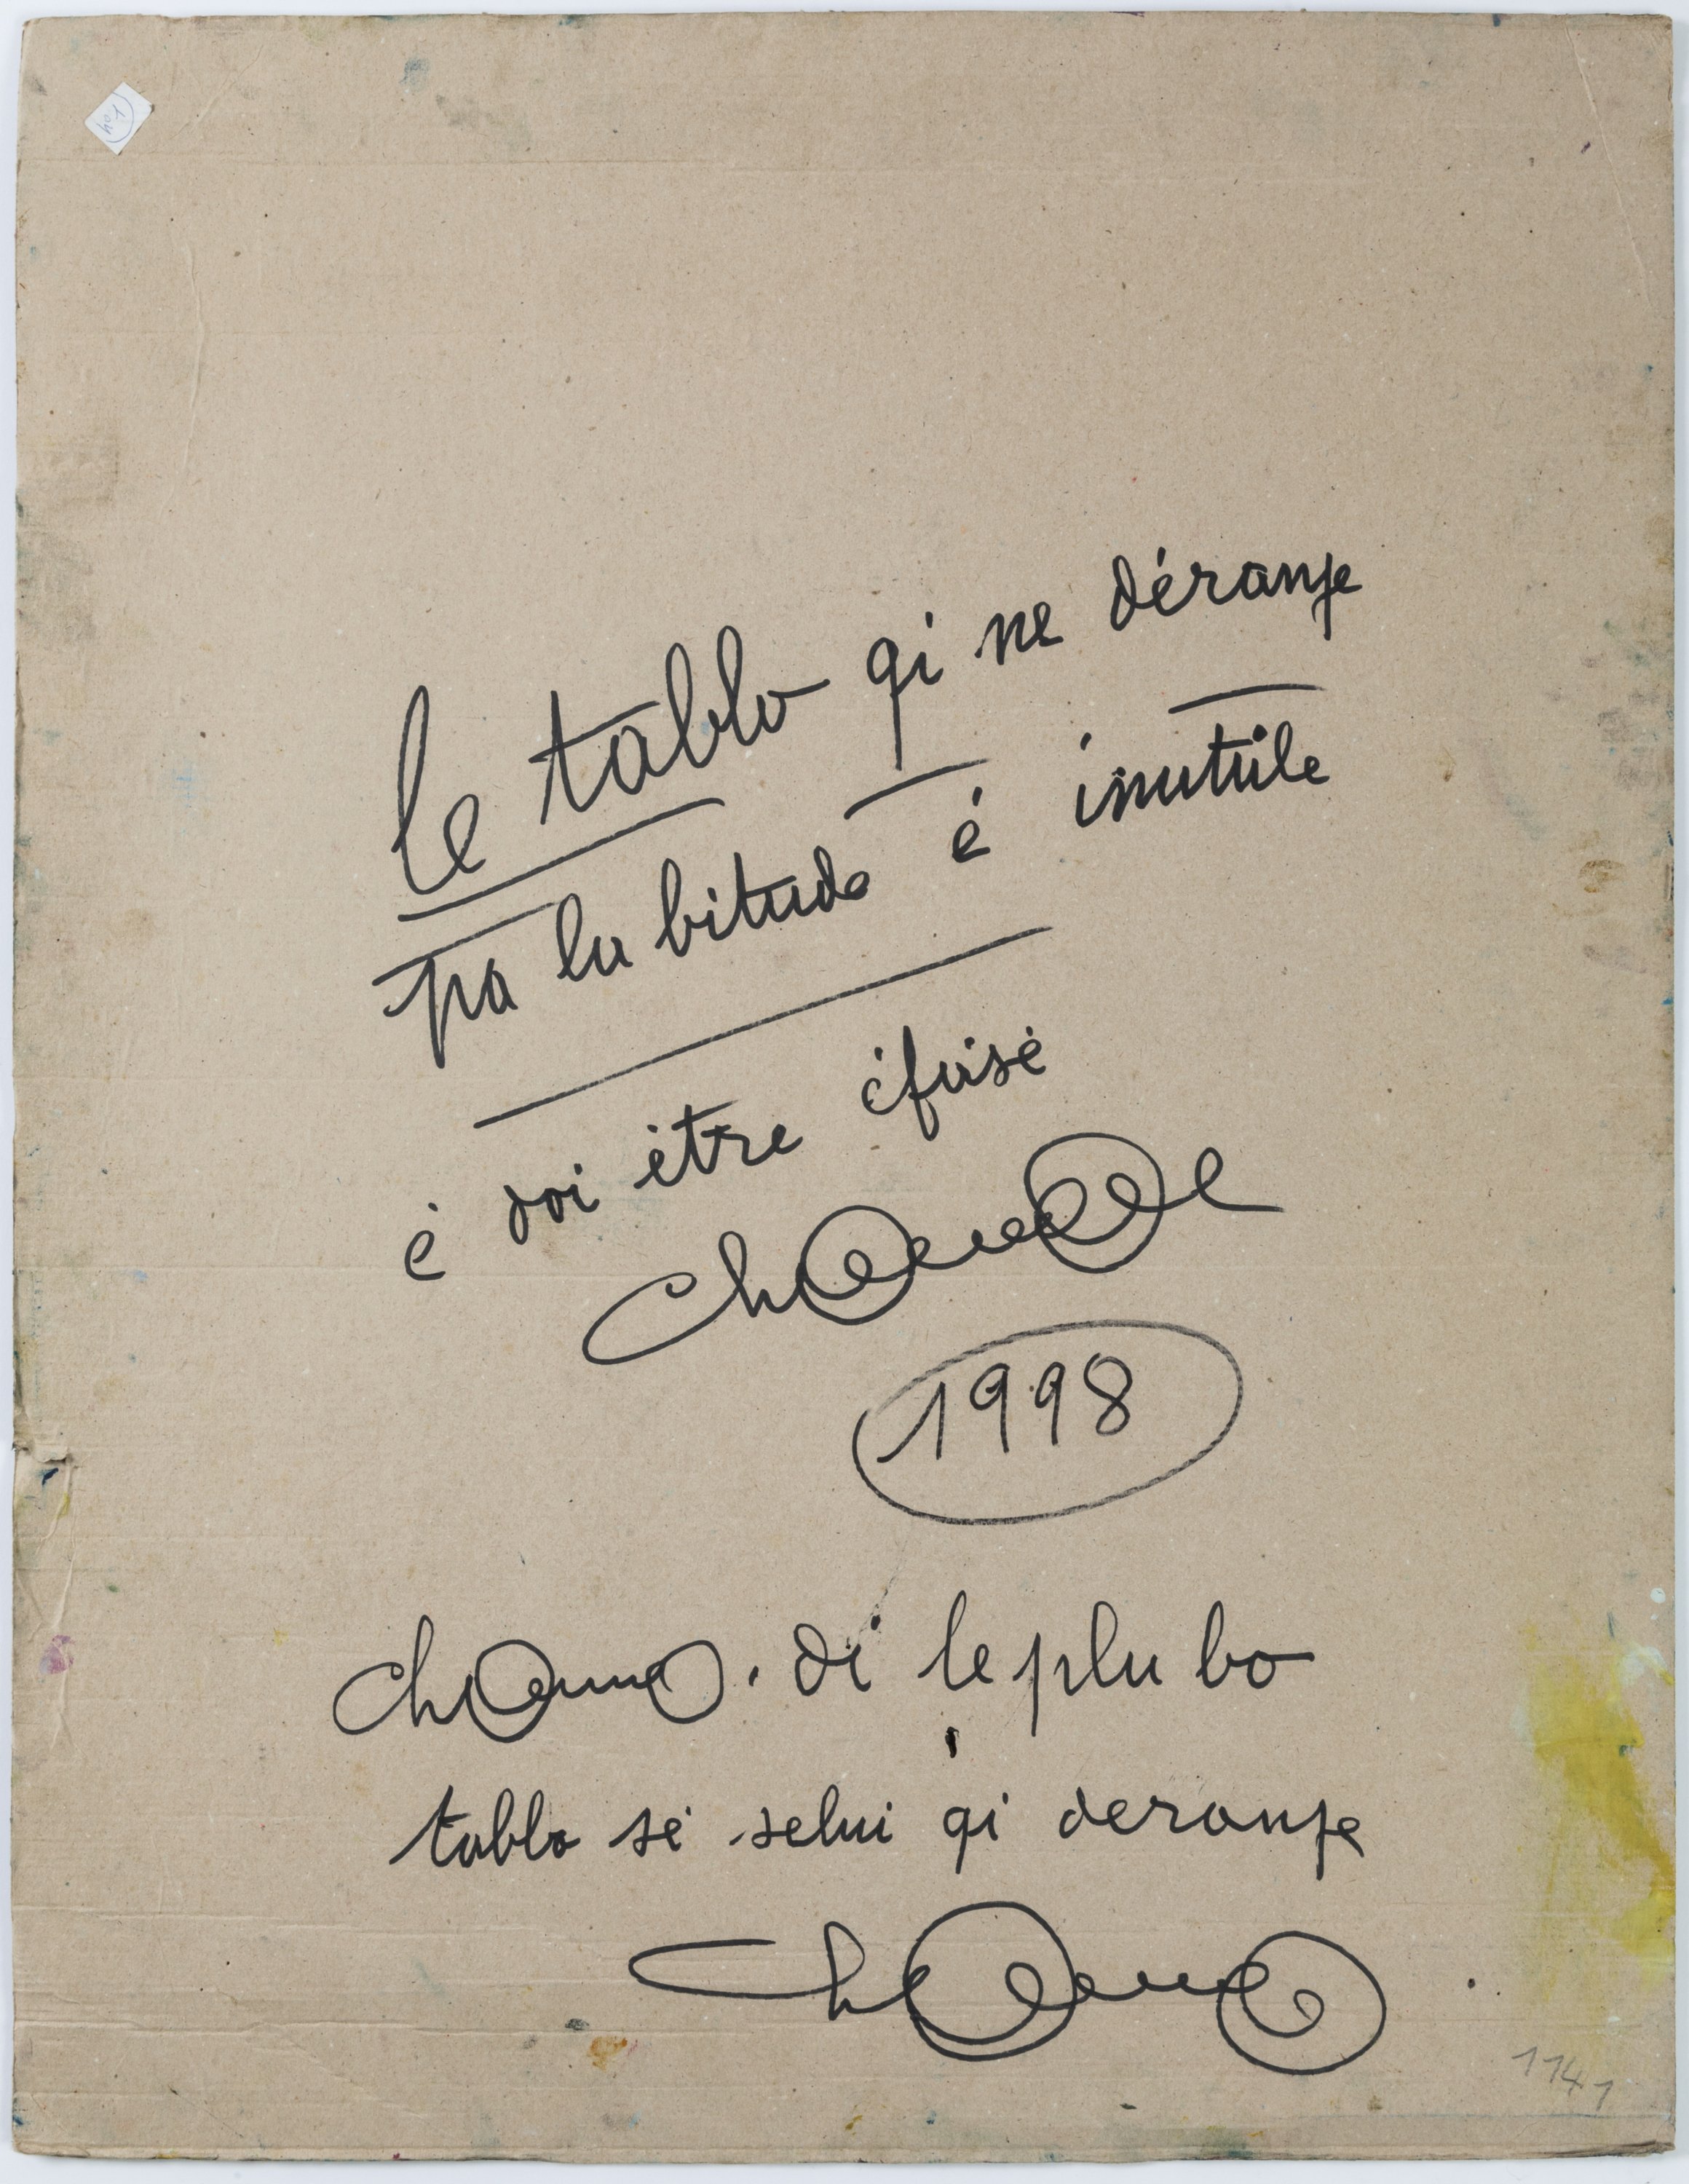 le tablo qi ne déranje
pa la bitude é inutile
é doi être éfasé
Chomo
1998
Chomo. di le plu bo
tablo sé selui qi deranje
Chomo
1141